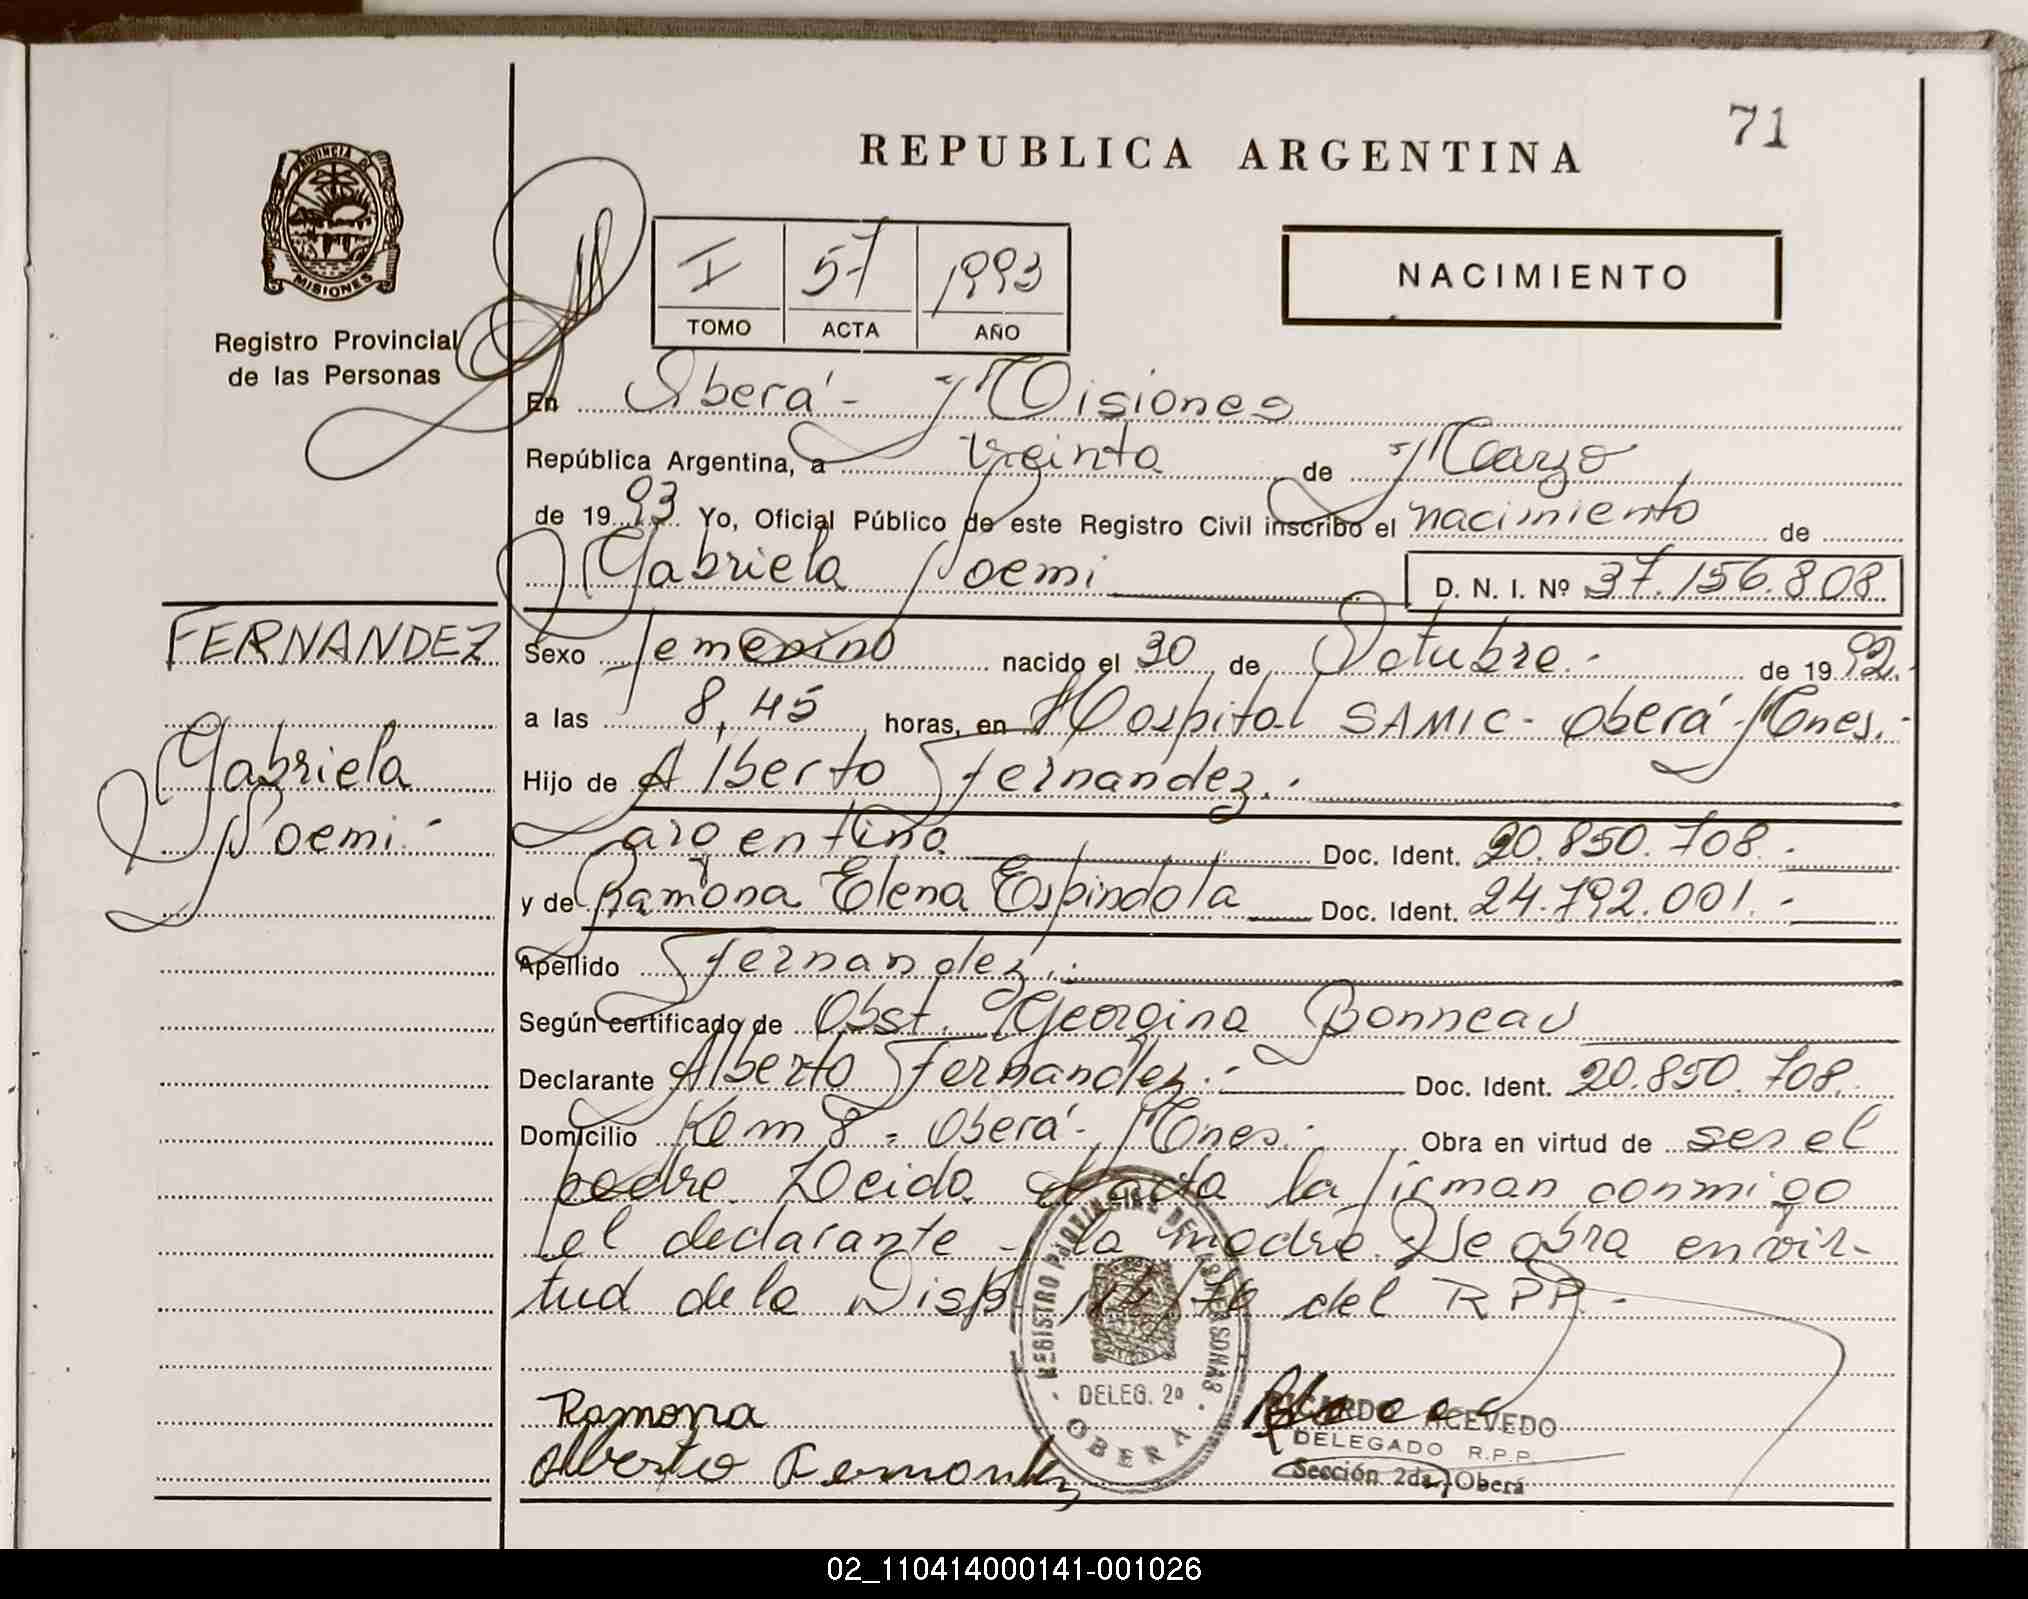 71
REPUBLICA ARGENTINA
PROVINCIA DE
MISIONES
Registro Provincial
de las Personas
I 57 1993
TOMO ACTA AÑO
NACIMIENTO
En Oberá - Misiones
República Argentina, a Veinte de Marzo
de 1993 Yo, Oficial Público de este Registro Civil inscribo el nacimiento de
Gabriela Noemi D. N. I. Nº 37.156.808
FERNANDEZ
Sexo femenino nacido el 30 de Octubre.- de 1992.
a las 8,45 horas, en Hospital SAMIC - Oberá - Mnes.-
Gabriela
Hijo de Alberto Fernandez.-
Noemi.-
argentino Doc. Ident. 20.850.708.-
y de Ramona Elena Espindola Doc. Ident. 24.792.001.-
Apellido Fernandez.-
Según certificado de Obst. Georgina Bonneau
Declarante Alberto Fernandez.- Doc. Ident. 20.850.708.
Domicilio Km 8 - Oberá - Mnes.- Obra en virtud de ser el
padre. Leida el acta la firman conmigo
el declarante - la madre. Se obra en vir-
tud de la Disp. del RPP.-
REGISTRO PROVINCIAL DE LAS PERSONAS
DELEG. 2ª
OBERA
Ramona
Alberto Fernandez
RICARDO ACEVEDO
DELEGADO R.P.P.
Sección 2da, Oberá
02_110414000141-001026